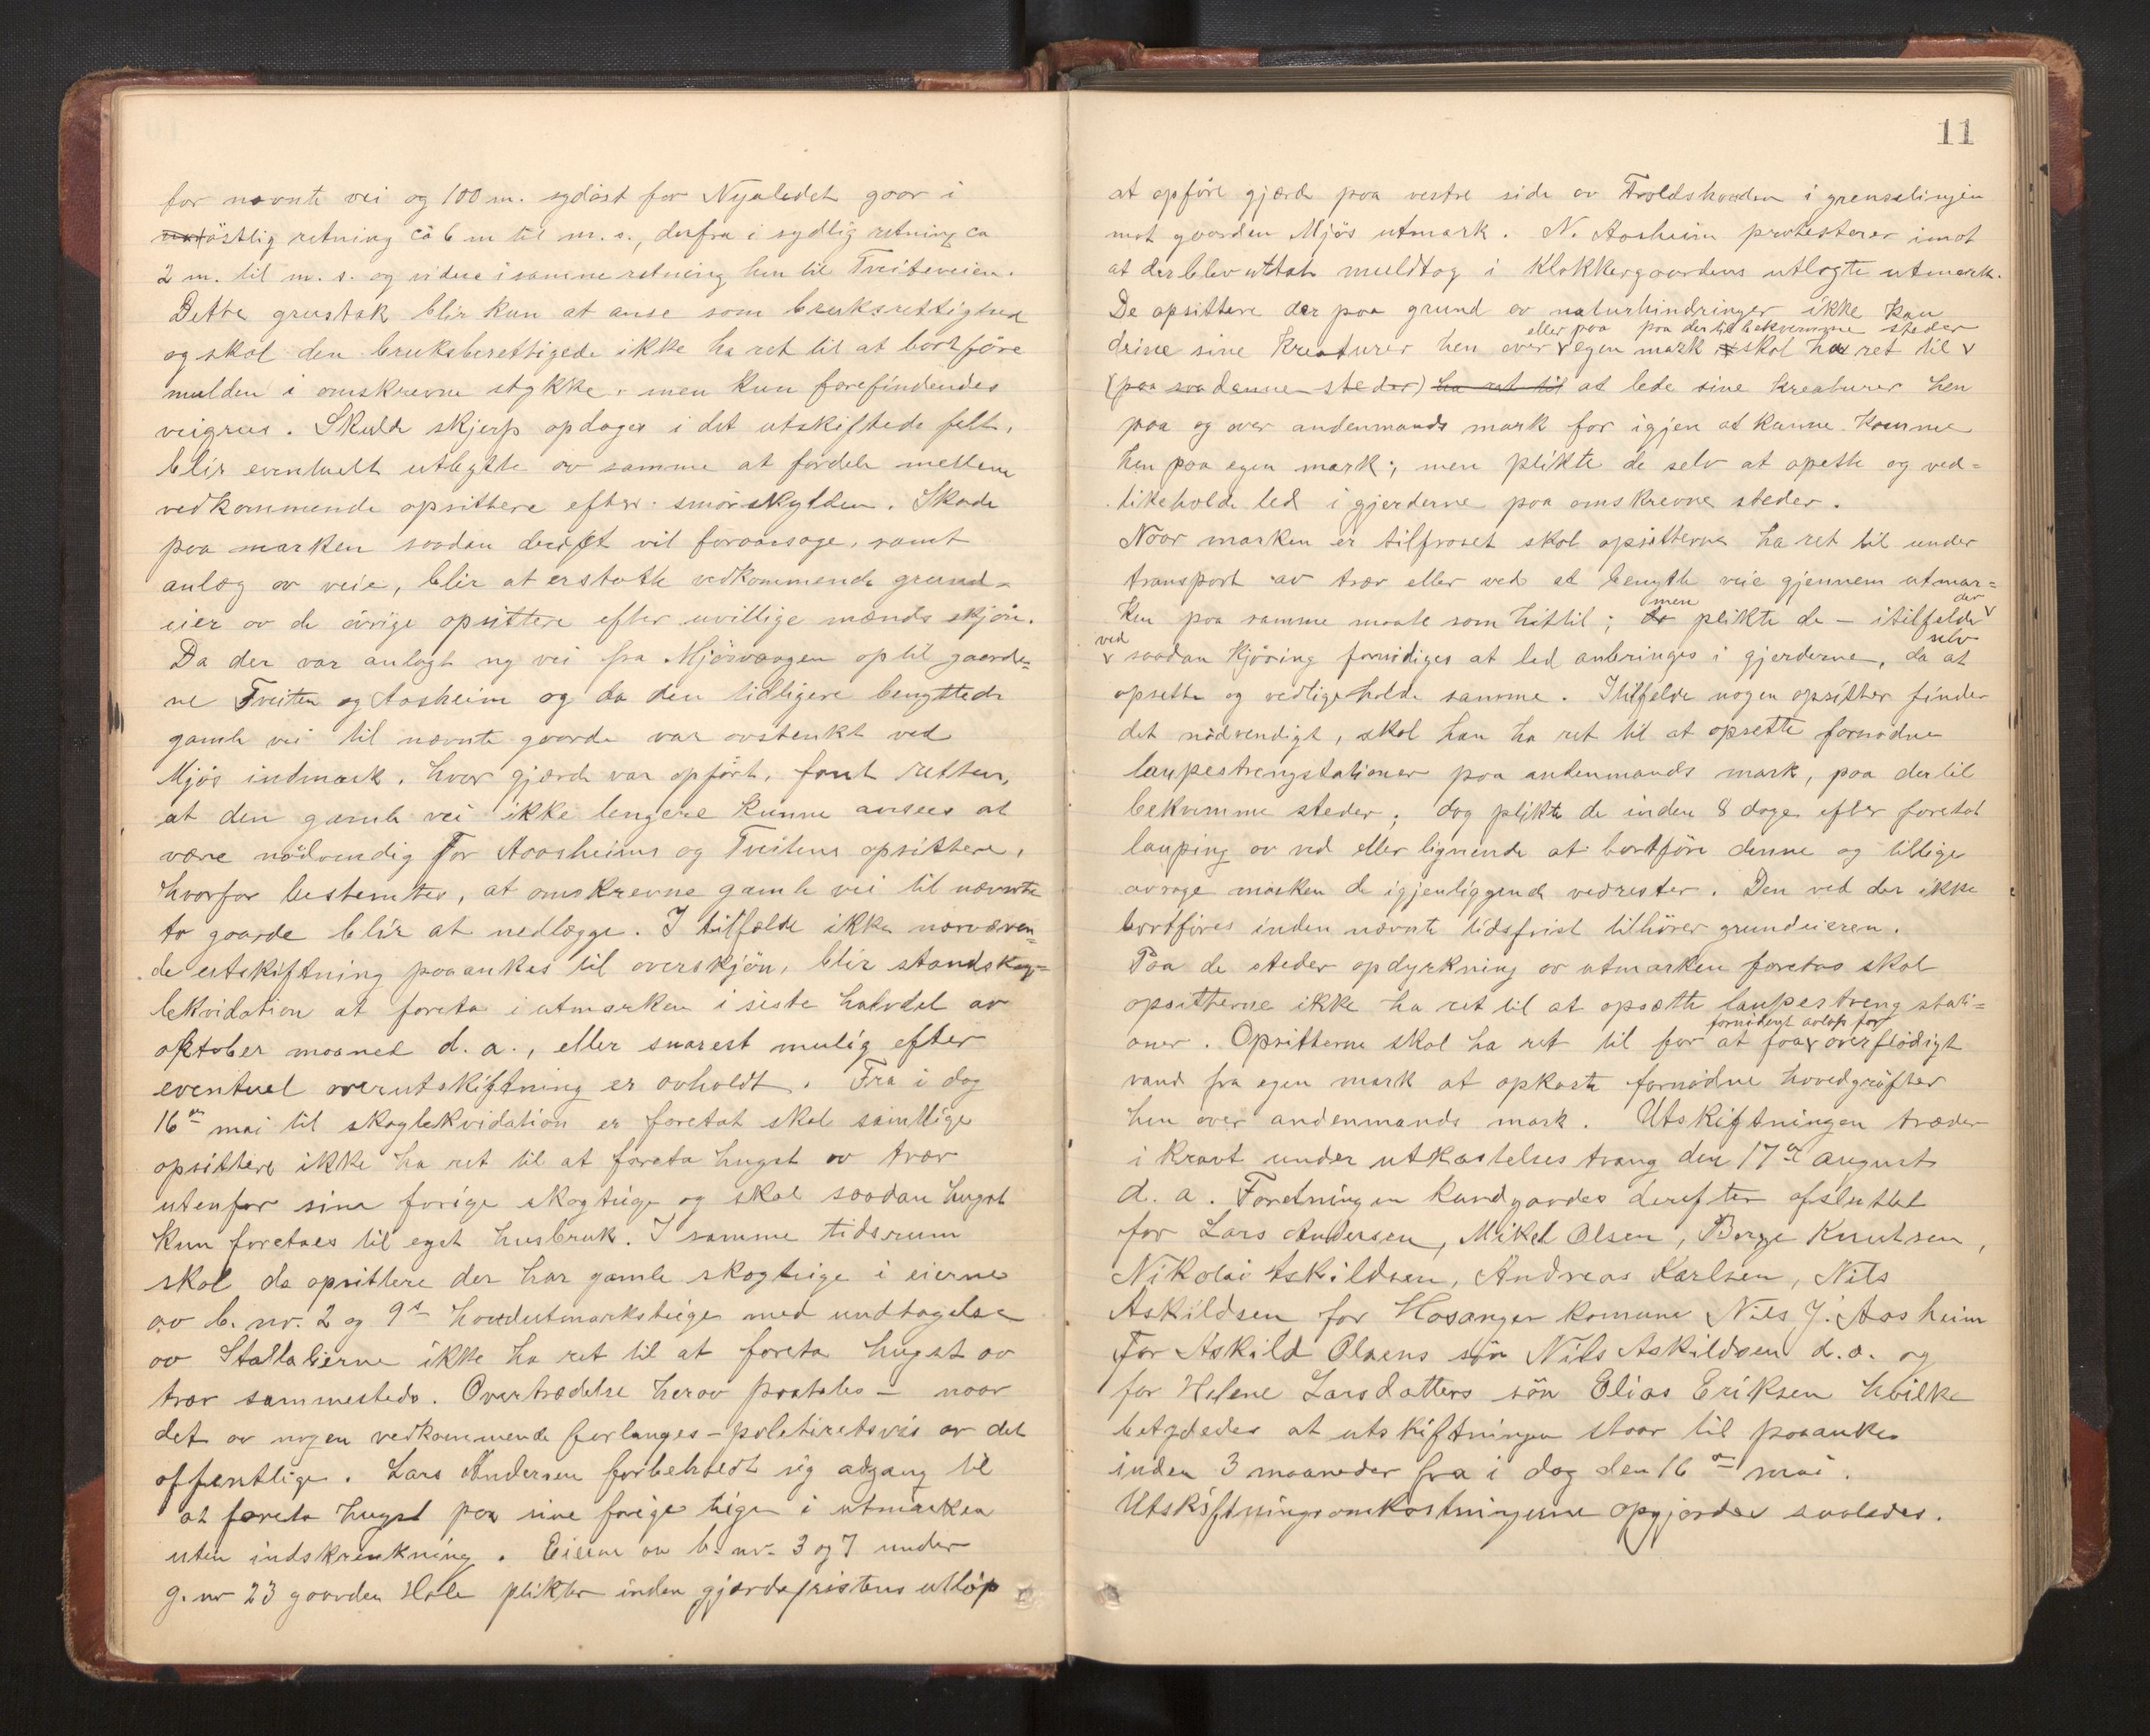 for nævnte vei og 100 m. sydöst for Nyaledet gaar i
östlig retning ca 6 m til m. s., derfra i sydlig retning ca
2 m. til m. s. og videre i samme retning hen til Tveiteveien.
Dette grustak blir kun at anse som bruksrettighed
og skal den bruksberettigede ikke ha ret til at bortföre
mulden i omskrevne stykke, men kun forefindendes
veigrus. Skulde skjerp opdages i det utskiftede felt,
blir eventuelt utbytte av samme at fordele mellem
vedkommende opsittere efter smörskylden. Skade
paa marken saadan drift vil foraarsage, samt
anlæg av veie, blir at erstatte vedkommende grund-
eier av de övrige opsittere efter uvillige mænds skjön.
Da der var anlagt ny vei fra Mjösvaagen op til gaarde-
ne Tveiten og Aasheim og da den tidligere benyttede
gamle vei til nævnte gaarde var avstenkt ved
Mjös indmark, hvor gjærde var opfört, fant retten,
at den gamle vei ikke lengere kunne ansees at
være nödvendig for Aaasheims og Tveitens opsittere,
hvorfor bestemtes, at omskrevne gamle vei til nævnte
to gaarde blir at nedlægge. I tilfælde ikke nærværen-
de utskiftning paaankes til overskjön, blir standskog-
lekvidation at foreta i utmarken i siste halvdel av
oktober maaned d. a., eller snarest mulig efter
eventuel overutskiftning er avholdt. Fra i dag
16de mai til skoglekvidation er foretat skal samtlige
opsittere ikke ha ret til at foreta hugst av trær
utenfor sine forige skogteige og skal saadan hugst
kun foretaes til eget husbruk. I samme tidsrum
skal de opsittere der har gamle skogteige i eierne
av b. nr. 2 og 9s hovedutmarksteige med undtagelse
av Stallalierne ikke ha ret til at foreta hugst av
trær sammesteds. Overtrædelse herav paatales – naar
det av nogen vedkommende forlanges – politiretsvis av det
offentlige. Lars Andersen forbeholdt sig adgang til
at foreta hugst paa sine forige teiger i utmarken
uten indskrenkning. Eierne av b. nr. 3 og 7 under
g. nr 23 gaarden Hole plikter inden gjærdefristens utlöp
11
at opföre gjærde paa vestre side av Troldskaarden i grenselinjen
mot gaarden Mjös utmark. N. Aasheim protesterer imot
at der blev uttat muldtag i Klokkergaardens utlagte utmark.
De opsittere der paa grund av naturhindringer ikke kan
eller paa paa dertil bekvemme steder
drive sine kreaturer hen over v egen mark skal ha ret til v
(paa saadanne steder) ha ret til at lede sine kreaturer hen
paa og over andenmands mark for igjen at kunne komme
hen paa egen mark; men plikter de selv at opsette og ved-
likeholde led i gjerderne paa omskrevne steder.
Naar marken er tilfroset skal opsitterne ha ret til under
transport av trær eller ved at benytte veie gjennem utmar-
men der
ken paa samme maate som hittil; de plikter de – i tilfælde v
ved selv
v saadan kjöring fornödiges at led anbringes i gjerderne, da at
opsette og vedligeholde samme. I tilfælde nogen opsitter finder
det nödvendigt, skal han ha ret til at opsette fornödne
laupestrengstationer paa andenmands mark, paa dertil
bekvemme steder; dog plikter de inden 8 dage efter foretat
lauping av ved eller lignende at bortföre denne og tillige
avrage marken de igjenliggende vedrester. Den ved der ikke
bortföres inden nævnte tidsfrist tilhörer grundeieren.
Paa de steder opdyrkning av utmarken foretas skal
opsitterne ikke ha ret til at opsætte laupestreng stati-
fornödent avlöp for
oner. Opsitterne skal ha ret til for at faa v overflödigt
vand fra egen mark at opkaste fornödne hovedgröfter
hen over andenmands mark. Utskiftningen træder
i kraft under utkastelses tvang den 17de august
d. a. Forretningen kundgjordes derefter afsluttet
for Lars Andersen, Mikel Olsen, Börge Knutsen,
Nikolai Askildsen, Andreas Karlsen, Nils
Askildsen for Hosanger komune Nils J. Aasheim
For Askild Olsens sön Nils Askildsen d. a. og
for Helene Larsdatters sön Elias Eriksen hvilke
betydedes at utskiftningen staar til paaanke
inden 3 maaneder fra i dag den 16de mai.
Utskiftningsomkostningerne opgjordes saaledes.